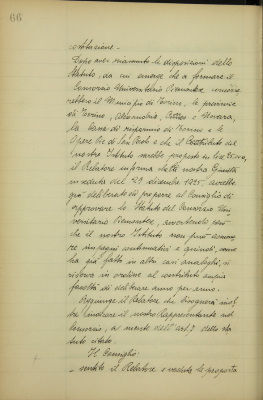 66
costituzione. -
Dopo aver riassunto le disposizioni dello
Statuto, da cui emerge che a formare il
Consorzio Universitario Piemontese, concor-
rettero il Municipio di Torino, le provincie
di Torino, Alessandria, Cuneo e Novara,
la Cassa di risparmio di Torino e le
Opere Pie di San Paolo e che il contributo del
nostro Istituto sarebbe proposto in
il Relatore informa che la nostra Giunta
in seduta del 29 dicembre 1925, avrebbe
già deliberato di proporre al Consiglio di
approvare lo Statuto del Consorzio Uni-
versitario Piemontese, avvertendo però
che il nostro Istituto non può assume-
re impegni continuativi e quindi, come
ha già fatto in altri casi analoghi, si
riserva in ordine al contributo ampia
facoltà di deliberare anno per anno.
Soggiunge il Relatore che bisognerà inol-
tre nominare il nostro Rappresentante nel
Consorzio, ai sensi dell'art. 7 dello sta-
tuto citato.
Il Consiglio
- sentito il Relatore e veduta la proposta